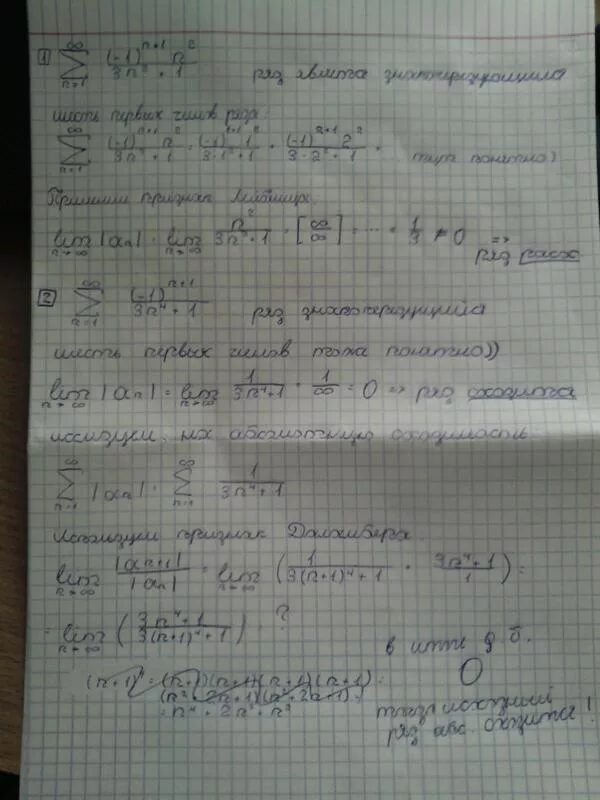 1 ∞ ∑ n=1 (-1)^(n+1) n^2 / 3n^2 + 1 ряд является знакочередующимся
шесть первых членов ряда:
∞ ∑ n=1 (-1)^(n+1) n^2 / 3n^2 + 1 = (-1)^(1+1) 1^2 / 3·1^2 + 1 + (-1)^(2+1) 2^2 / 3·2^2 + 1 + тут понятно)
Применим признак Лейбница:
lim n→∞ |an| = lim n→∞ n^2 / 3n^2 + 1 = [∞/∞] = ... = 1/3 ≠ 0 => ряд расх
2 ∞ ∑ n=1 (-1)^(n+1) / 3n^4 + 1 ряд знакочередующийся
шесть первых членов тоже понятно))
lim n→∞ |an| = lim n→∞ 1 / 3n^4+1 = 1/∞ = 0 => ряд сходится
исследуем на абсолютную сходимость
∞ ∑ n=1 |an| = ∞ ∑ n=1 1 / 3n^4+1
Используем признак Даламбера:
lim n→∞ |an+1| / |an| = lim n→∞ (1 / 3(n+1)^4+1 · 3n^4+1 / 1) =
= lim n→∞ (3n^4+1 / 3(n+1)^4+1) = ?
в итоге д. б.
0
(n+1)^4 = (n+1)(n+1)(n+1)(n+1) =
(n^2+2n+1)(n^2+2n+1) =
= n^4 + 2n^3 + n^2
тогда исходный
ряд абс. сходится!